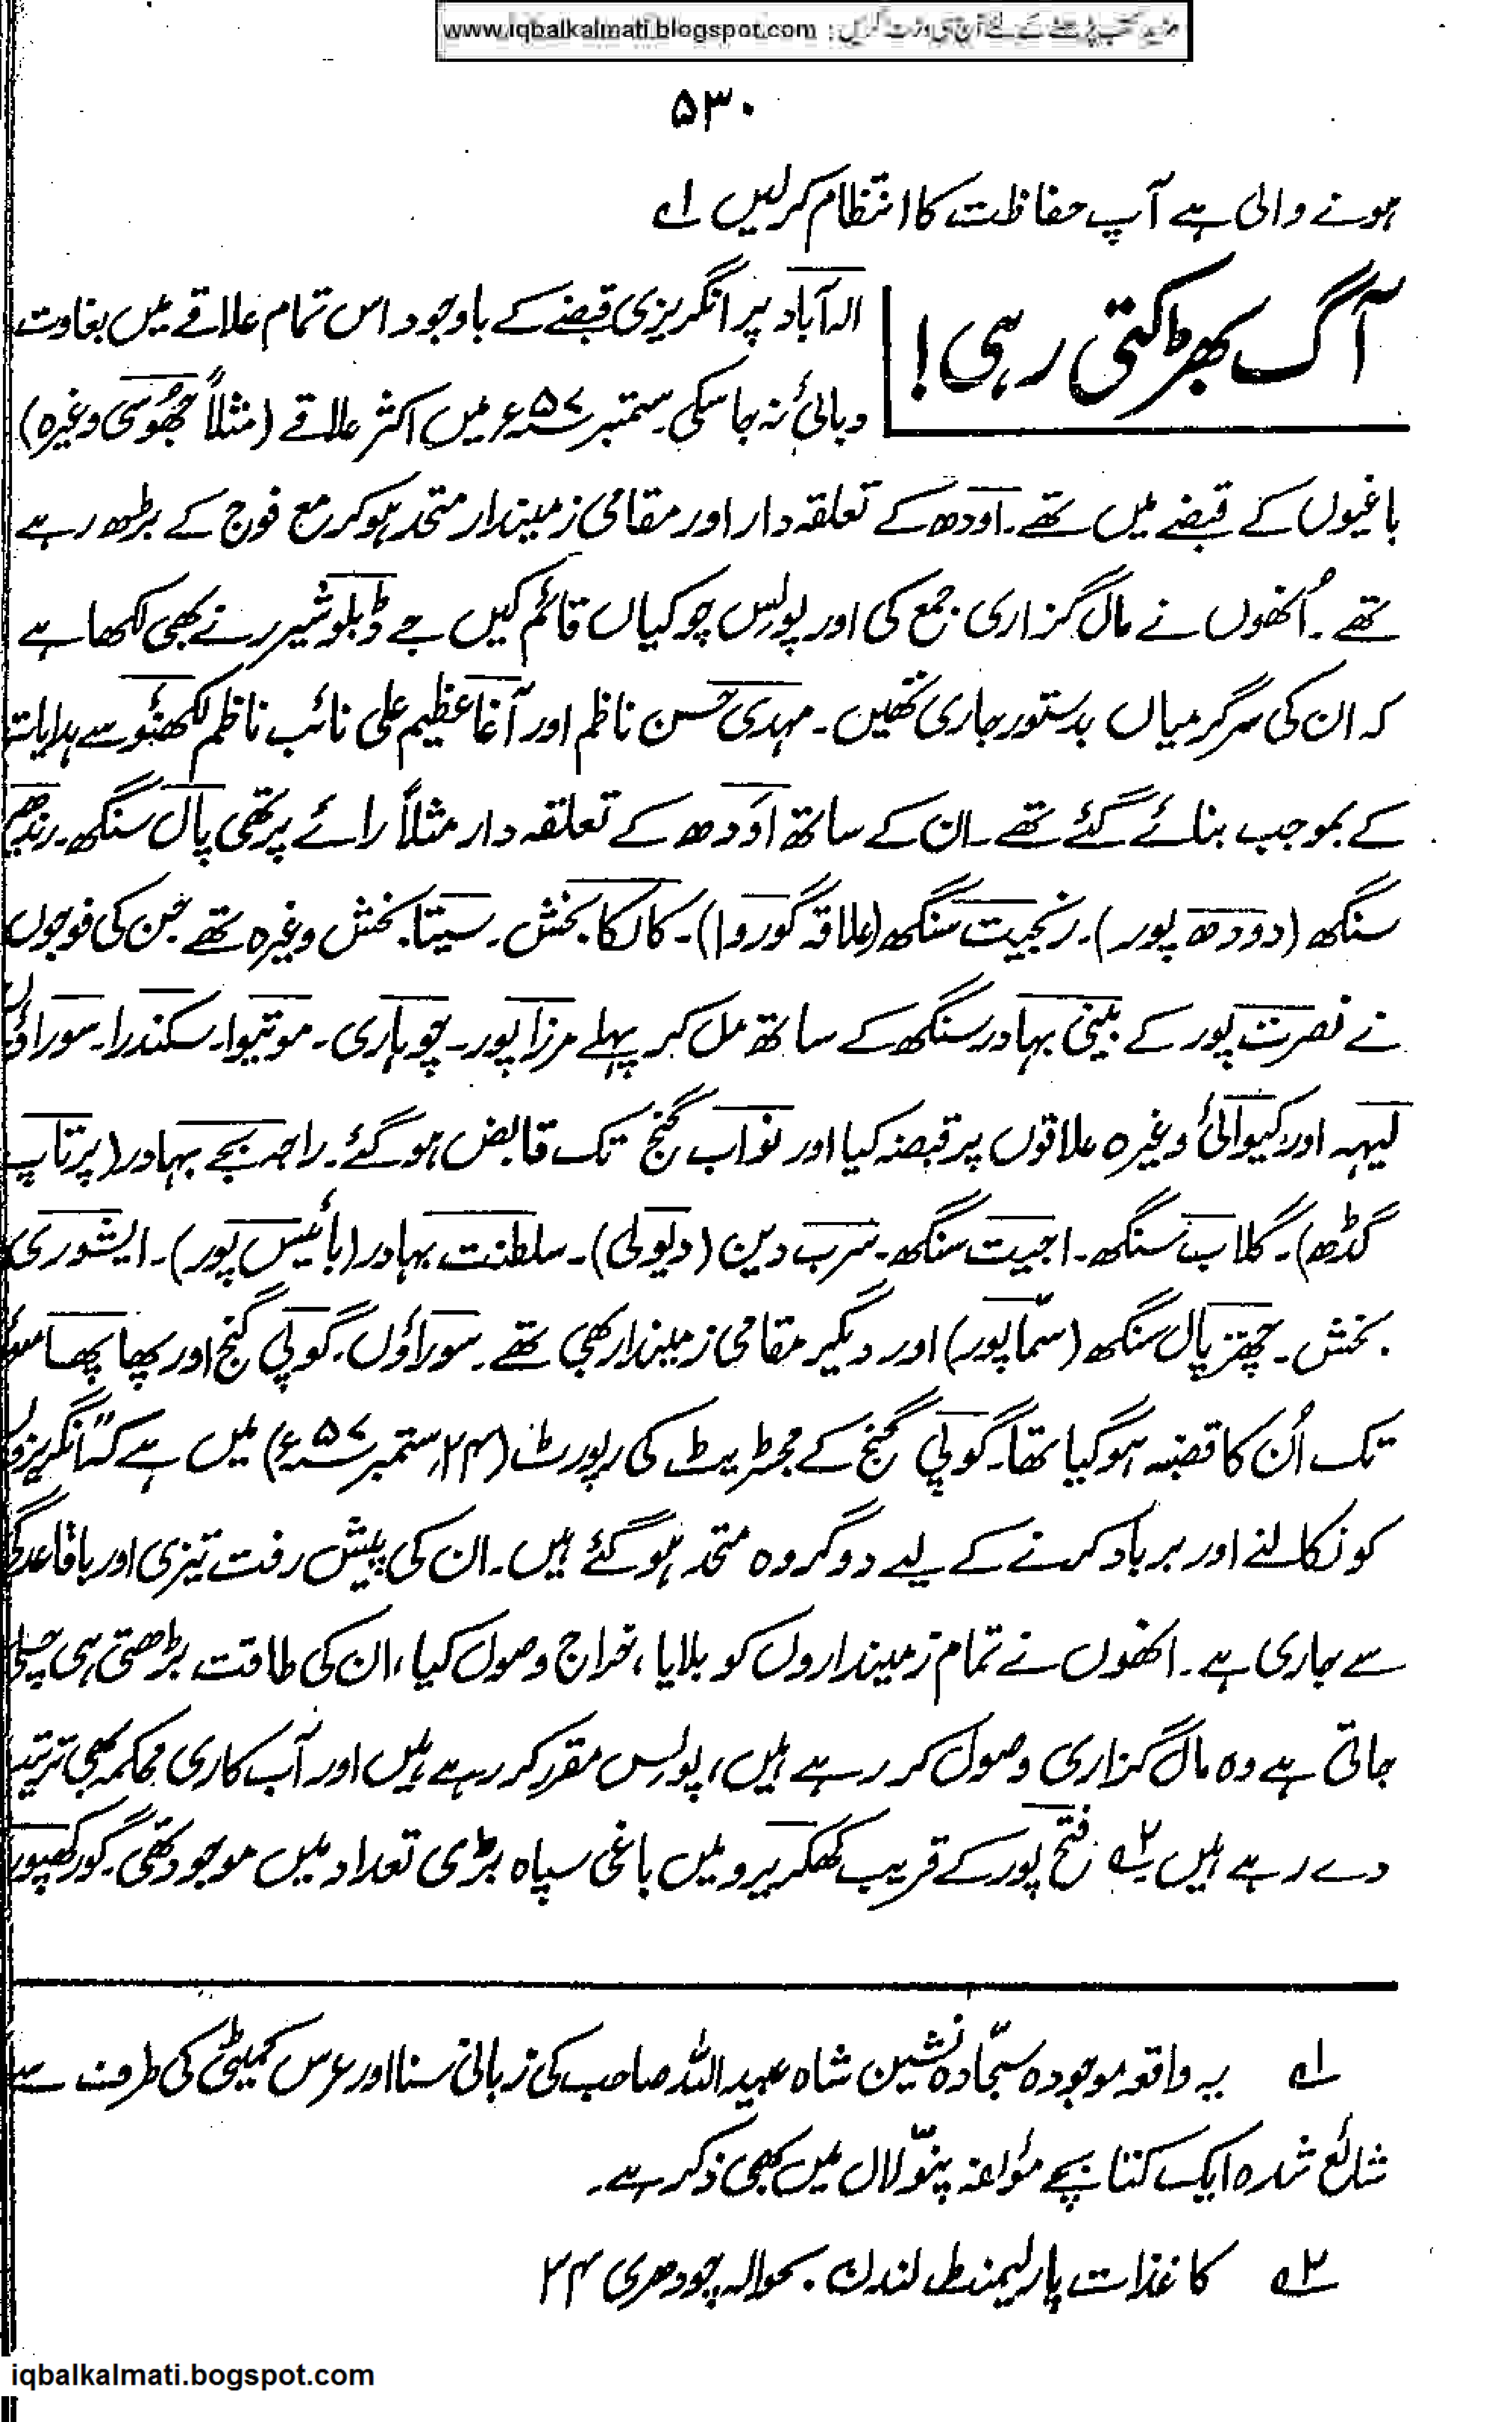 مزید کتب پڑھنے کے لئے آج ہی وزٹ کریں : www.iqbalkalmati.blogspot.com
۵۳۰
ہونے والی ہے آپ حفاظت کا انتظام کرلیں ۱؎
آگ بھڑکتی رہی!
الہ آباد پر انگریزی قبضے کے باوجود اس تمام علاقے میں بغاوت
دبائی نہ جا سکی۔ ستمبر ۵۷ء میں اکثر علاقے (مثلاً جھُوسی وغیرہ)
باغیوں کے قبضے میں تھے۔ اودھ کے تعلقہ دار اور مقامی زمیندار متحد ہوکر مع فوج کے بڑھ رہے
تھے۔ اُنھوں نے مال گزاری جمع کی اور پولیس چوکیاں قائم کیں جے ڈبلو شیرر نے بھی لکھا ہے
کہ ان کی سرگرمیاں بدستور جاری تھیں۔ مہدی حسن ناظم اور آغا عظیم علی نائب ناظم لکھنؤ سے ہدایات
کے بموجب بنائے گئے تھے۔ ان کے ساتھ اَودھ کے تعلقہ دار مثلاً رائے پرتھی پال سنگھ۔ رندھیر
سنگھ (دودھ پور)۔ رنجیت سنگھ (علاقہ گوروا)۔ کالکا بخش۔ سیتا بخش وغیرہ تھے جن کی فوجوں
نے نصرت پور کے بینی بہادر سنگھ کے ساتھ مل کر پہلے مرزا پور۔ چوہاری۔ موتیوا۔ سکندرا۔ سوراؤں
لیہہ اور کیوائی وغیرہ علاقوں پر قبضہ کیا اور نواب گنج تک قابض ہوگئے۔ راجہ بجے بہادر (پرتاپ
گڈھ)۔ گلاب سنگھ۔ اجیت سنگھ۔ سَرب دین (دیولی)۔ سلطنت بہادر (بائیس پور)۔ ایشوری
بخش۔ چھتر پال سنگھ (سمّاپور) اور دیگر مقامی زمیندار بھی تھے۔ سوراؤں۔ گوپی گنج اور پھاپھامئو
تک اُن کا قضبہ ہوگیا تھا۔ گوپی گنج کے مجسٹریٹ کی رپورٹ (۲۴ ستمبر ۵۷ء) میں ہے کہ "انگریزوں
کو نکالنے اور برباد کرنے کے لیے دو گروہ متحد ہوگئے ہیں۔ ان کی پیش رفت تیزی اور باقاعدگی
سے جاری ہے۔ انھوں نے تمام زمینداروں کو بلایا، خراج وصول کیا، ان کی طاقت بڑھتی ہی چلی
جاتی ہے وہ مال گزاری وصول کر رہے ہیں، پولیس مقرر کر رہے ہیں اور آب کاری محکمہ بھی ترتیب
دے رہے ہیں ۲؎ فتح پور کے قریب کھکریرو میں باغی سپاہ بڑی تعداد میں موجود تھی۔ گورکھپور
۱؎ یہ واقعہ موجودہ سجّادہ نشین شاہ عبید اللہ صاحب کی زبانی سنا اور عرس کمیٹی کی طرف سے
شائع شدہ ایک کتابچے مؤلفہ پنّو لال میں بھی ذکر ہے۔
۲؎ کاغذات پارلیمنٹ لندن۔ بحوالہ چودھری ۲۴
iqbalkalmati.bogspot.com